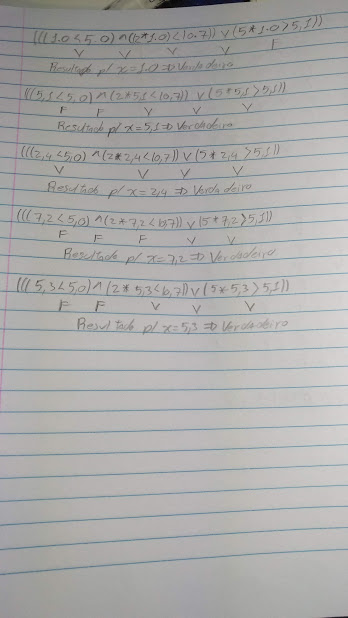 (((1.0<5.0) ∧ (2*1.0)<10,7)) ∨ (5*1.0>5,1))
V V V V F
Resultado p/ x=1.0 ⇒ Verdadeiro
(((5,1<5,0) ∧ (2*5,1<10,7)) ∨ (5*5,1>5,1))
F F V V V
Resultado p/ x=5,1 ⇒ Verdadeiro
(((2,4<5,0) ∧ (2*2,4<10,7)) ∨ (5*2,4>5,1))
V V V V
Resultado p/ x=2,4 ⇒ Verdadeiro
(((7,2<5,0) ∧ (2*7,2<10,7)) ∨ (5*7,2>5,1))
F F F V V
Resultado p/ x=7,2 ⇒ Verdadeiro
(((5,3<5,0) ∧ (2*5,3<10,7)) ∨ (5*5,3>5,1))
F F V V V
Resultado p/ x=5,3 ⇒ Verdadeiro